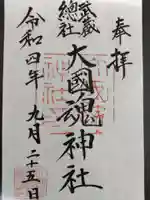 奉拝
武蔵
總社
大國魂神社
令和四年九月二十五日